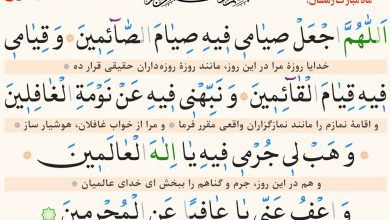 ماه مبارک رمضان:
اللّهُمَّ اجْعَلْ صِیامی فیهِ صِیامَ الصّآئِمینَ * وَ قِیامی
خدایا روزهٔ مرا در این روز، مانند روزهٔ روزه‌داران حقیقی قرار ده *
فیهِ قِیامَ الْقآئِمینَ * وَ نَبِّهْنی فیهِ عَنْ نَوْمَةِ الْغافِلینَ
و اقامهٔ نمازم را مانند نمازگزاران واقعی مقرر فرما * و مرا از خواب غافلان، هوشیار ساز *
* وَ هَبْ لی جُرْمی فیهِ یا اِلهَ الْعالَمینَ *
و هم در این روز، جرم و گناهم را ببخش ای خدای عالمیان *
وَ اعْفُ عَنّی یا عافِیاً عَنِ الْمُجْرِمینَ